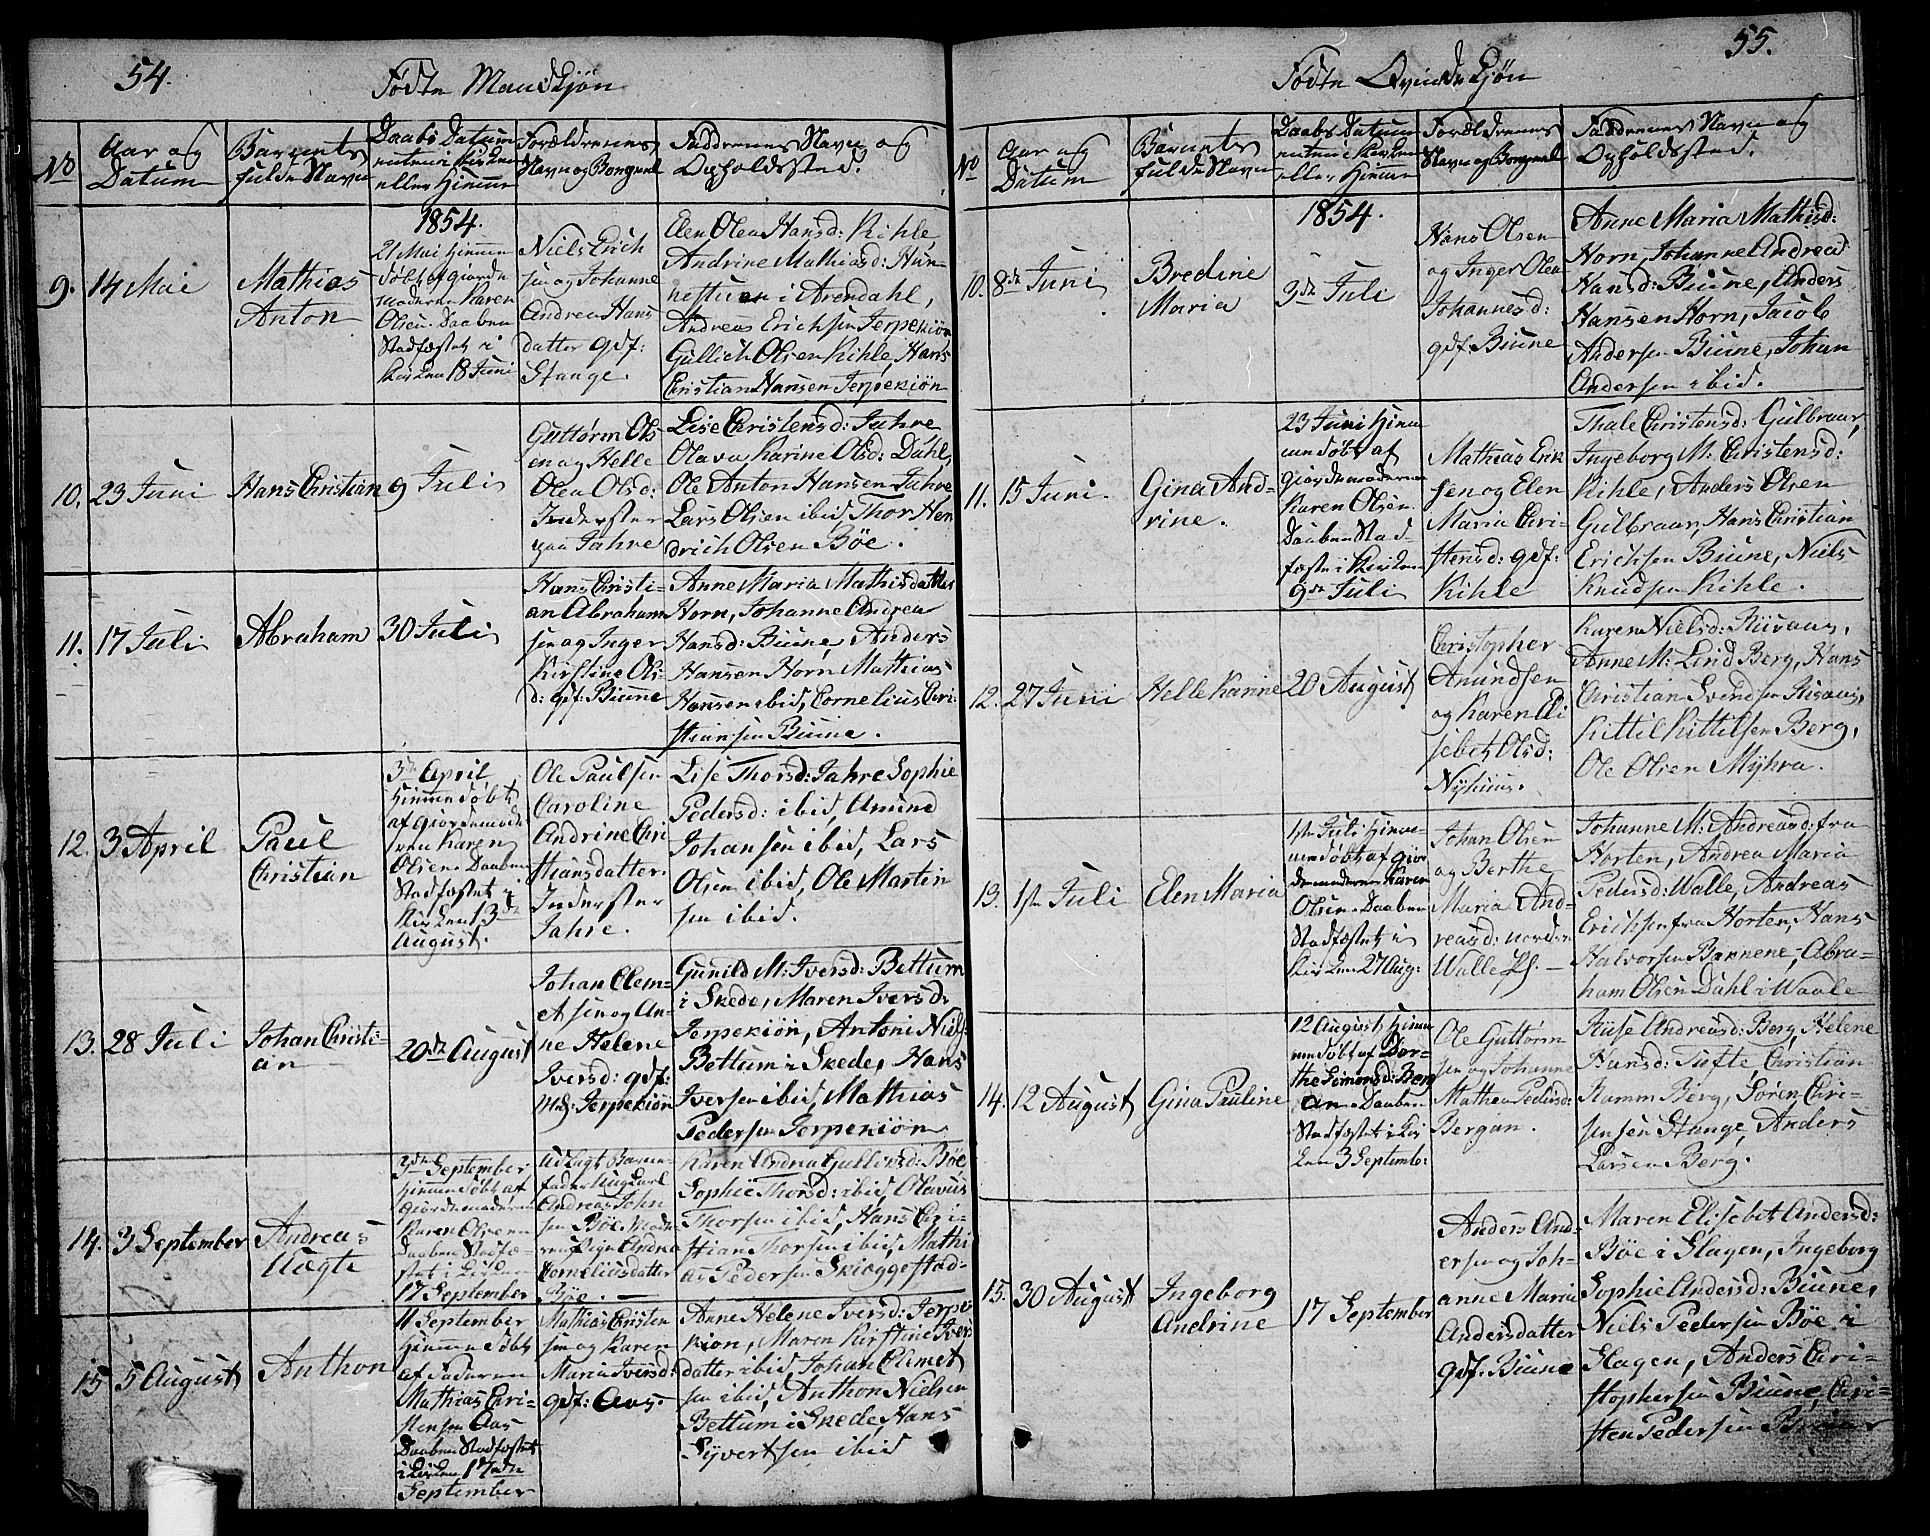 54.
Fødte Mandkjøn
No
Aar og
Datum
Barnets
fulde Navn
Daabs Datum
enten i Kirken
eller Hiemme
Forældrenes
Navn og Borgerel
Faddernes Navn og
Opholdssted.
9.
14 Mai
Mathias
Anton
1854.
21 Mai hiemme
døbt af giorde
moderen Karen
Olsen. Daaben
Stadfæstet i
Kirken 18 Juni
Niels Erich
sen og Johanne
Andrea Hans
datter gdf:
Stange.
Elen Olea Hansd: Kihle
Andrine Mathiasd: Hun
nestuen i Arendahl,
Andreas Erichsen Jerpekiøn
Gullich Olsen Kihle, Hans
Christian Hansen Jerpekiøn
10.
23 Juni
Hans Christian
9 Juli
Guttorm Ols
en og Helle
Olea Olsd:
Inderster
paa Jahre
Lise Christensd: Jahre
Olava Karine Olsd: Dahl,
Ole Anton Hansen Jahre
Lars Olsen ibid, Thor Hen
drich Olsen Bøe.
11.
17 Juli
Abraham
30 Juli
Hans Christi-
an Abraham
sen og Inger
Kirstine Ols
d: gdf: Biune
Anne Maria Mathisdatter
Horn, Johanne Andrea
Hansd: Biune, Anders
Hansen Horn Mathias
Hansen ibid, Cornelius Chri-
stiansen Biune.
12.
3 April
Paul
Christian
3de April
Hiemme døbt
af Giordemode
ren Karen
Olsen. Daaben
Stadfæstet i
Kirken 13de
August.
Ole Paulsen
Caroline
Andrine Chri
stiansdatter.
Inderster
Jahre.
Lise Thorsd: Jahre Sophie
Pedersd: ibid, Amund
Johansen ibid, Lars
Olsen ibid, Ole Martin
sen ibid.
13.
28 Juli
Johan Christi-
an
20de August
Johan Clem-
etsen og An-
ne Helene
Iversd: gdf:
Jerpekiøn
Gunild M: Iversd: Bettum
i Skede, Maren Iversd:
Jerpekiøn, Antoni Niels
Bettum i Skede, Hans
Iversen ibid, Mathias
Pedersen Jerpekiøn
14.
3 September
Andreas
Uægte
3de September
hiemme døbt af
giordemoderen
Karen Olsen
Daaben Stadfæ-
stet i Kirken
17 September
Udlagt Barne-
fader Ung Carl
Andreas John
sen Bøe Mode-
ren Pige Andrea
Corneliusdatter
Bøe.
Karen Andrea Gullixsd: Bøe
Sophie Thorsd: ibid, Olavus
Thorsen ibid, Hans Chri-
stian Thorsen ibid, Mathi
as Pedersen Skiaggestad-
15
5 August
Anthon
11 September
Hiemme døbt
af Faderen
Mathias Chri-
stensen Aas
Daaben Stadfæstet
i Kirken 17de
September
Mathias Christen
sen og Karen
Maria Iversd:
gdf: Aas.
Anne Helene Iversd: Jerpe
kiøn, Maren Kirstine Ivers
datter ibid, Johan Clemet
sen ibid, Anthon Nielsen
Bettum i Skede, Hans
Syvertsen ibid
55.
Fødte Qvindekjøn
No
Aar og
Datum
Barnets
fulde Navn
Daabs Datum
enten i Kirken
eller Hiemme
Forældrenes
Navn og Borgerel
Faddernes Navn og
Opholdssted.
10.
8de Juni
Bredine
Maria
1854.
3de Juli
Hans Olsen
og Inger Olea
Johannesd:
gdf. Biune
Anne Maria Mathisd:
Horn, Johanne Andrea
Hansd: Biune, Anders
Hansen Horn, Jacob
Andersen Biune, Johan
Andersen ibid.
11.
15 Juni.
Gina And-
rine.
23 Juni Hiem
me døbt af
Giordemoderen
Karen Olsen.
Daaben Stad-
fæstet i Kirken
9de Juli
Mathias Erik
sen og Elen
Maria Chri-
stensd: gdf:
Kihle
Thale Christensd: Gulbraar,
Ingeborg M: Christensd:
Kihle, Anders Olsen
Gulbraar, Hans Christian
Erichsen Biune, Niels
Knudsen Kihle.
12.
27 Juni
Helle Karine
20 August
Christopher
Amundsen
og Karen Eli
sebet Olsd:
Nyhuus.
Karen Nielsd: Riisaas,
Anne M: Lind Berg, Hans
Christian Svendsen Risaas,
Kittil Kittilsen Berg,
Ole Olsen Myhra.
13.
1ste Juli
Elen Maria
1ste Juli Hiem-
me døbt af Gior
demoderen Karen
Olsen. Daaben
Stadfæstet i
Kirken 27 Aug:
Johan Olsen
og Berthe
Maria And-
reasd: norder
Walle
Johanne M: Andreasd: fra
Horten, Andrea Maria
Pedersd: Walle, Andreas
Erichsen fra Horten, Hans
Halvorsen Bannene, Abra-
ham Olsen Dahl i Waale
14.
12 August
Gina Pauline
12 August Hiem
me døbt af Dor-
the Simonsd: Berg
an. Daaben
Stadfæstet i Kir
ken 3 Septemb:
Ole Guttorm
sen og Johanne
Mathea Pedersd:
Bergan.
Andreasd: Berg, Helene
Hansd: Tufte, Christian
Ramm Berg, Søren Chri-
sensen Stange, Anders
Larsen Berg.
15.
30 August
Ingeborg
Andrine
17 September
Anders And-
ersen og Joh-
anne Maria
Andersdatter
gdf. Biune
Maren Elisebet Andersd:
Bøe i Slagen, Ingeborg
Sophie Andersd: Biune,
Niels Pedersen Bøe i
Slagen, Anders Chri-
stophersen Biune, Chri-
sten Pedersen